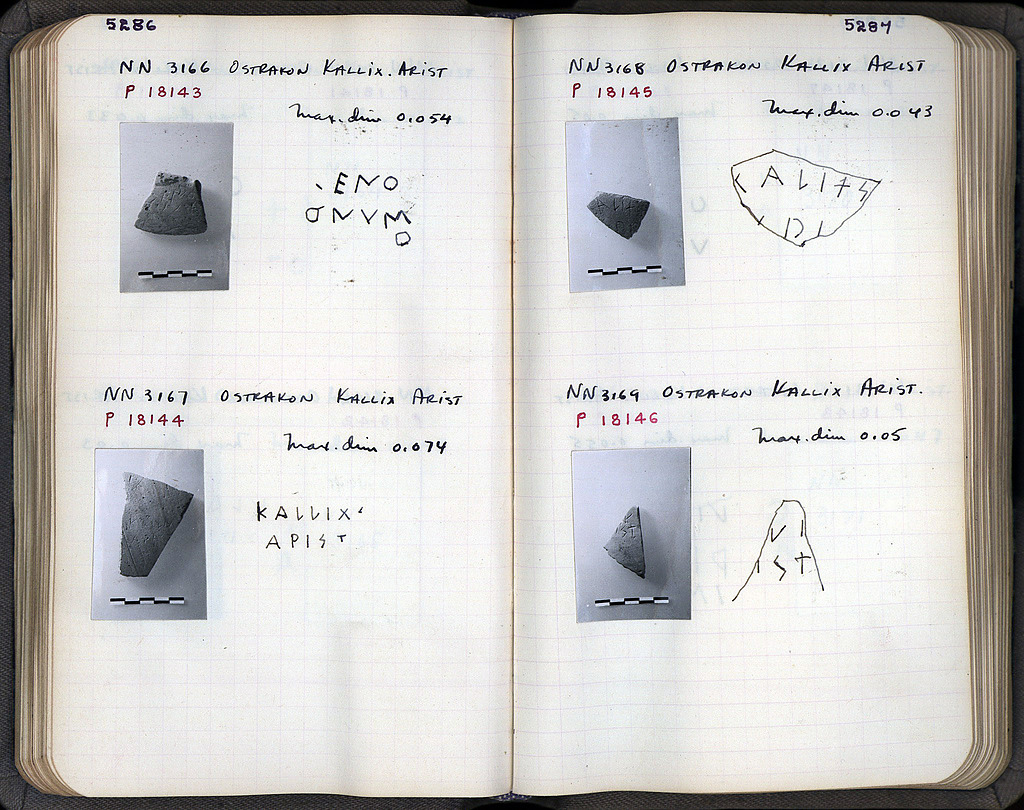 5286
NN 3166 OSTRAKON KALLIX. ARIST
P 18143
Max. dim 0.054
ENO
ONVM
O
NN 3167 OSTRAKON KALLIX ARIST
P 18144
Max. dim 0.074
KALLIX
APIST
5287
NN 3168 OSTRAKON KALLIX ARIST
P 18145
Max. dim 0.043
KALI+S
PI
NN 3169 OSTRAKON KALLIX ARIST.
P 18146
Max. dim 0.05
VI
IST